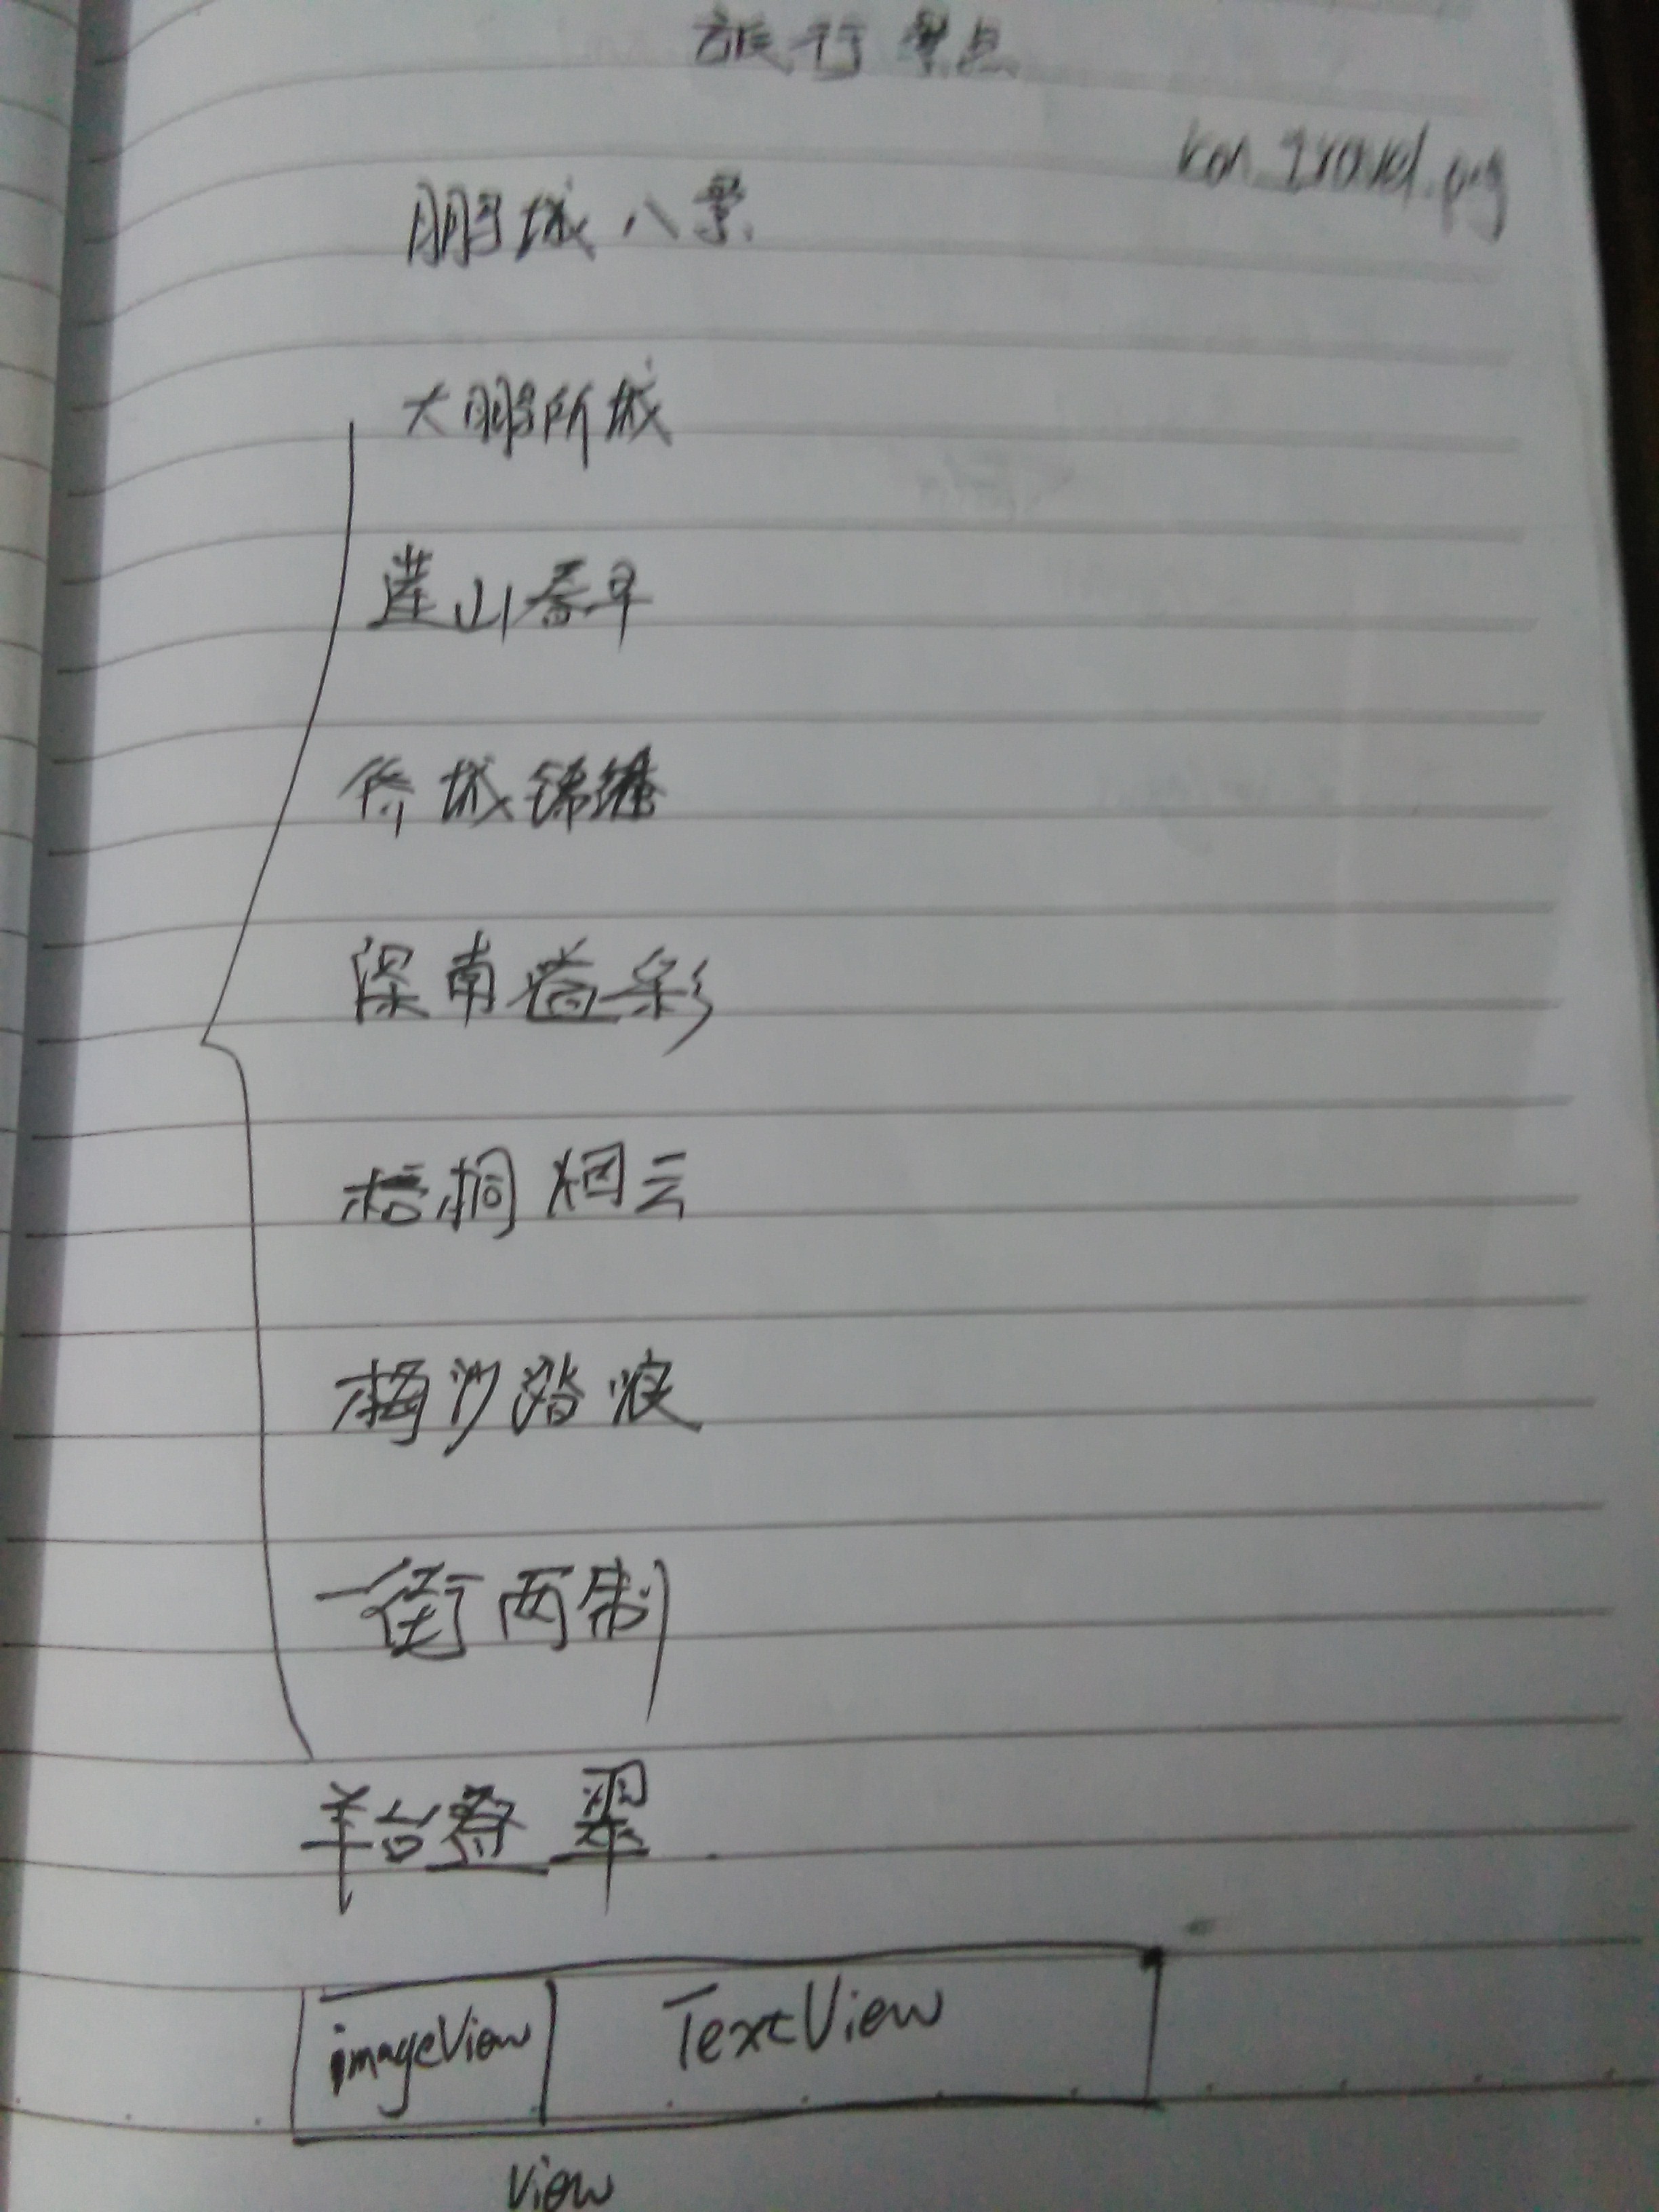 旅行景点
icon_travel.png
鹏城八景
大鹏所城
莲山春早
侨城锦绣
深南溢彩
梧桐烟云
梅沙踏浪
一街两制
羊台叠翠
imageView TextView
View